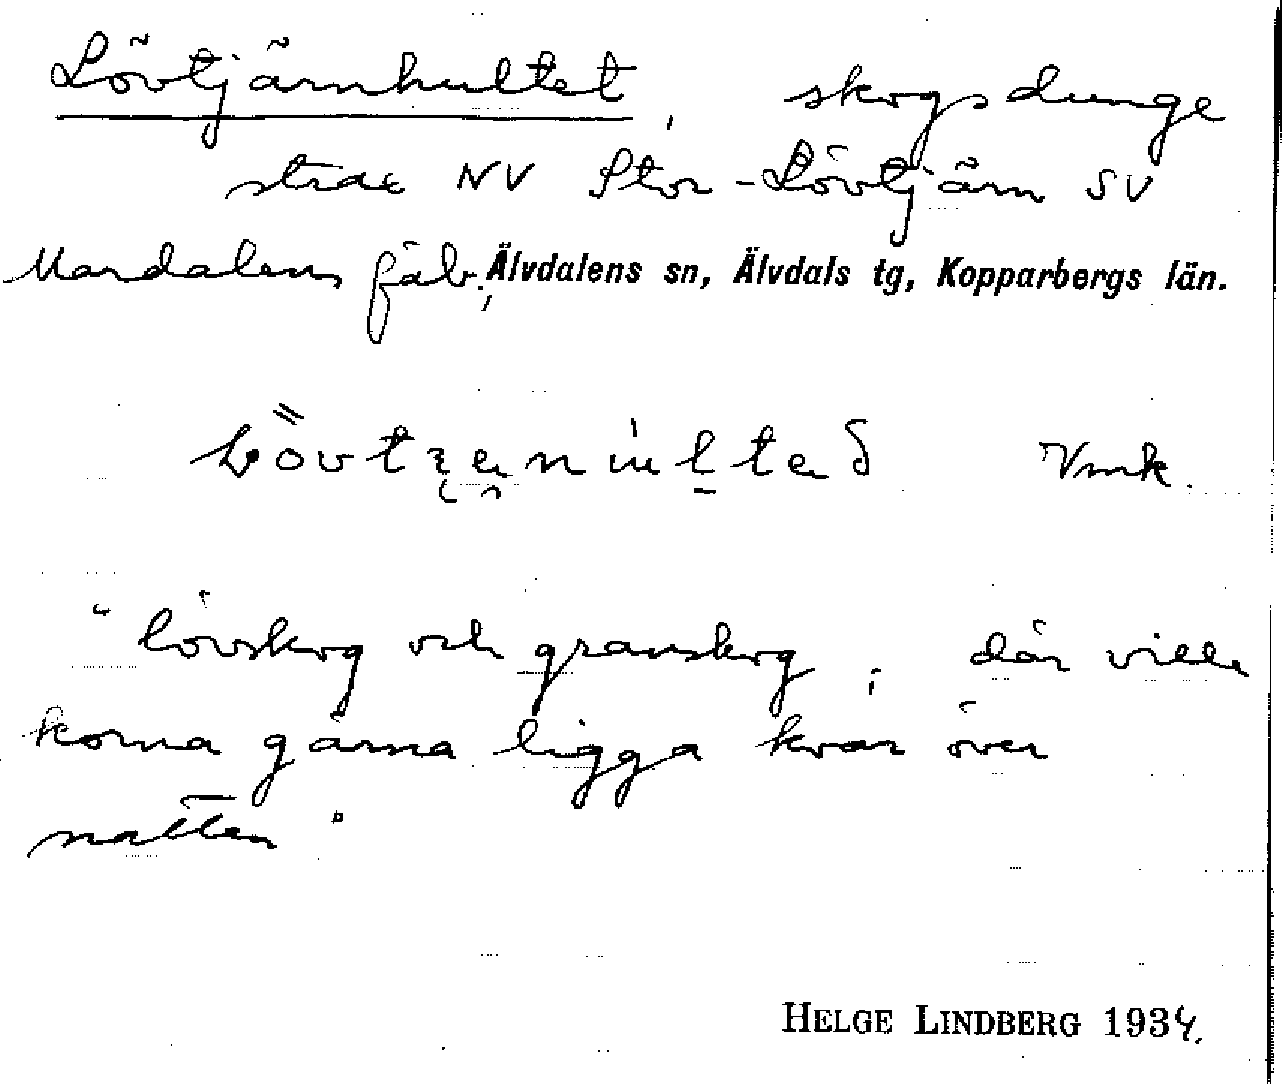 Lövtjärnhultet, skogsdunge
strax NV Stor-Lövtjärn SV
Mardalens fäb., Älvdalens sn, Älvdals tg, Kopparbergs län.
Vmk.
"lövskog och granskog; där ville
korna gärna ligga kvar över
natten"
HELGE LINDBERG 1934.